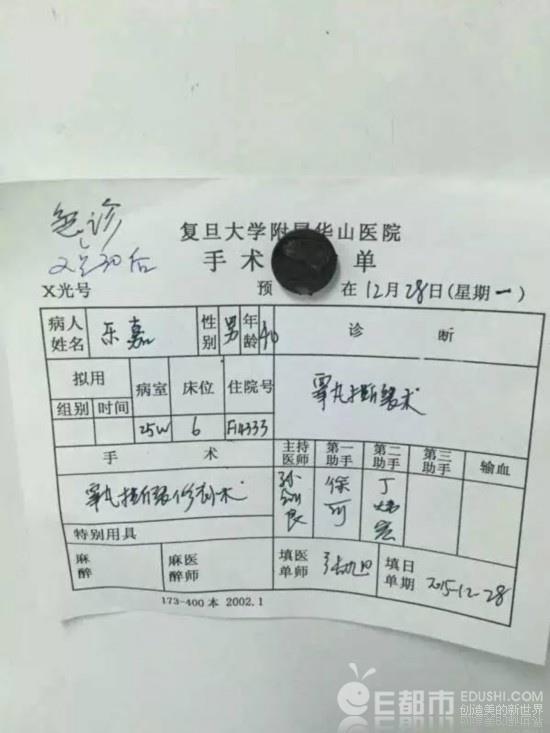 急诊
复旦大学附属华山医院
手术 单
X光号 预 在12月28日(星期一)
病人姓名 乐嘉 性别 男 年龄 40 诊断
拟用 病室 床位 住院号
组别 时间
25W 6 F14333
睾丸 术
手术 主持医师 第一助手 第二助手 第三助手 输血
睾丸 修补术
特别用具
麻醉 麻醉医师 填单医师 张旭 填单日期 2015-12-28
173-400本 2002.1
E都市 EDUSHI.COM
创造美的新世界